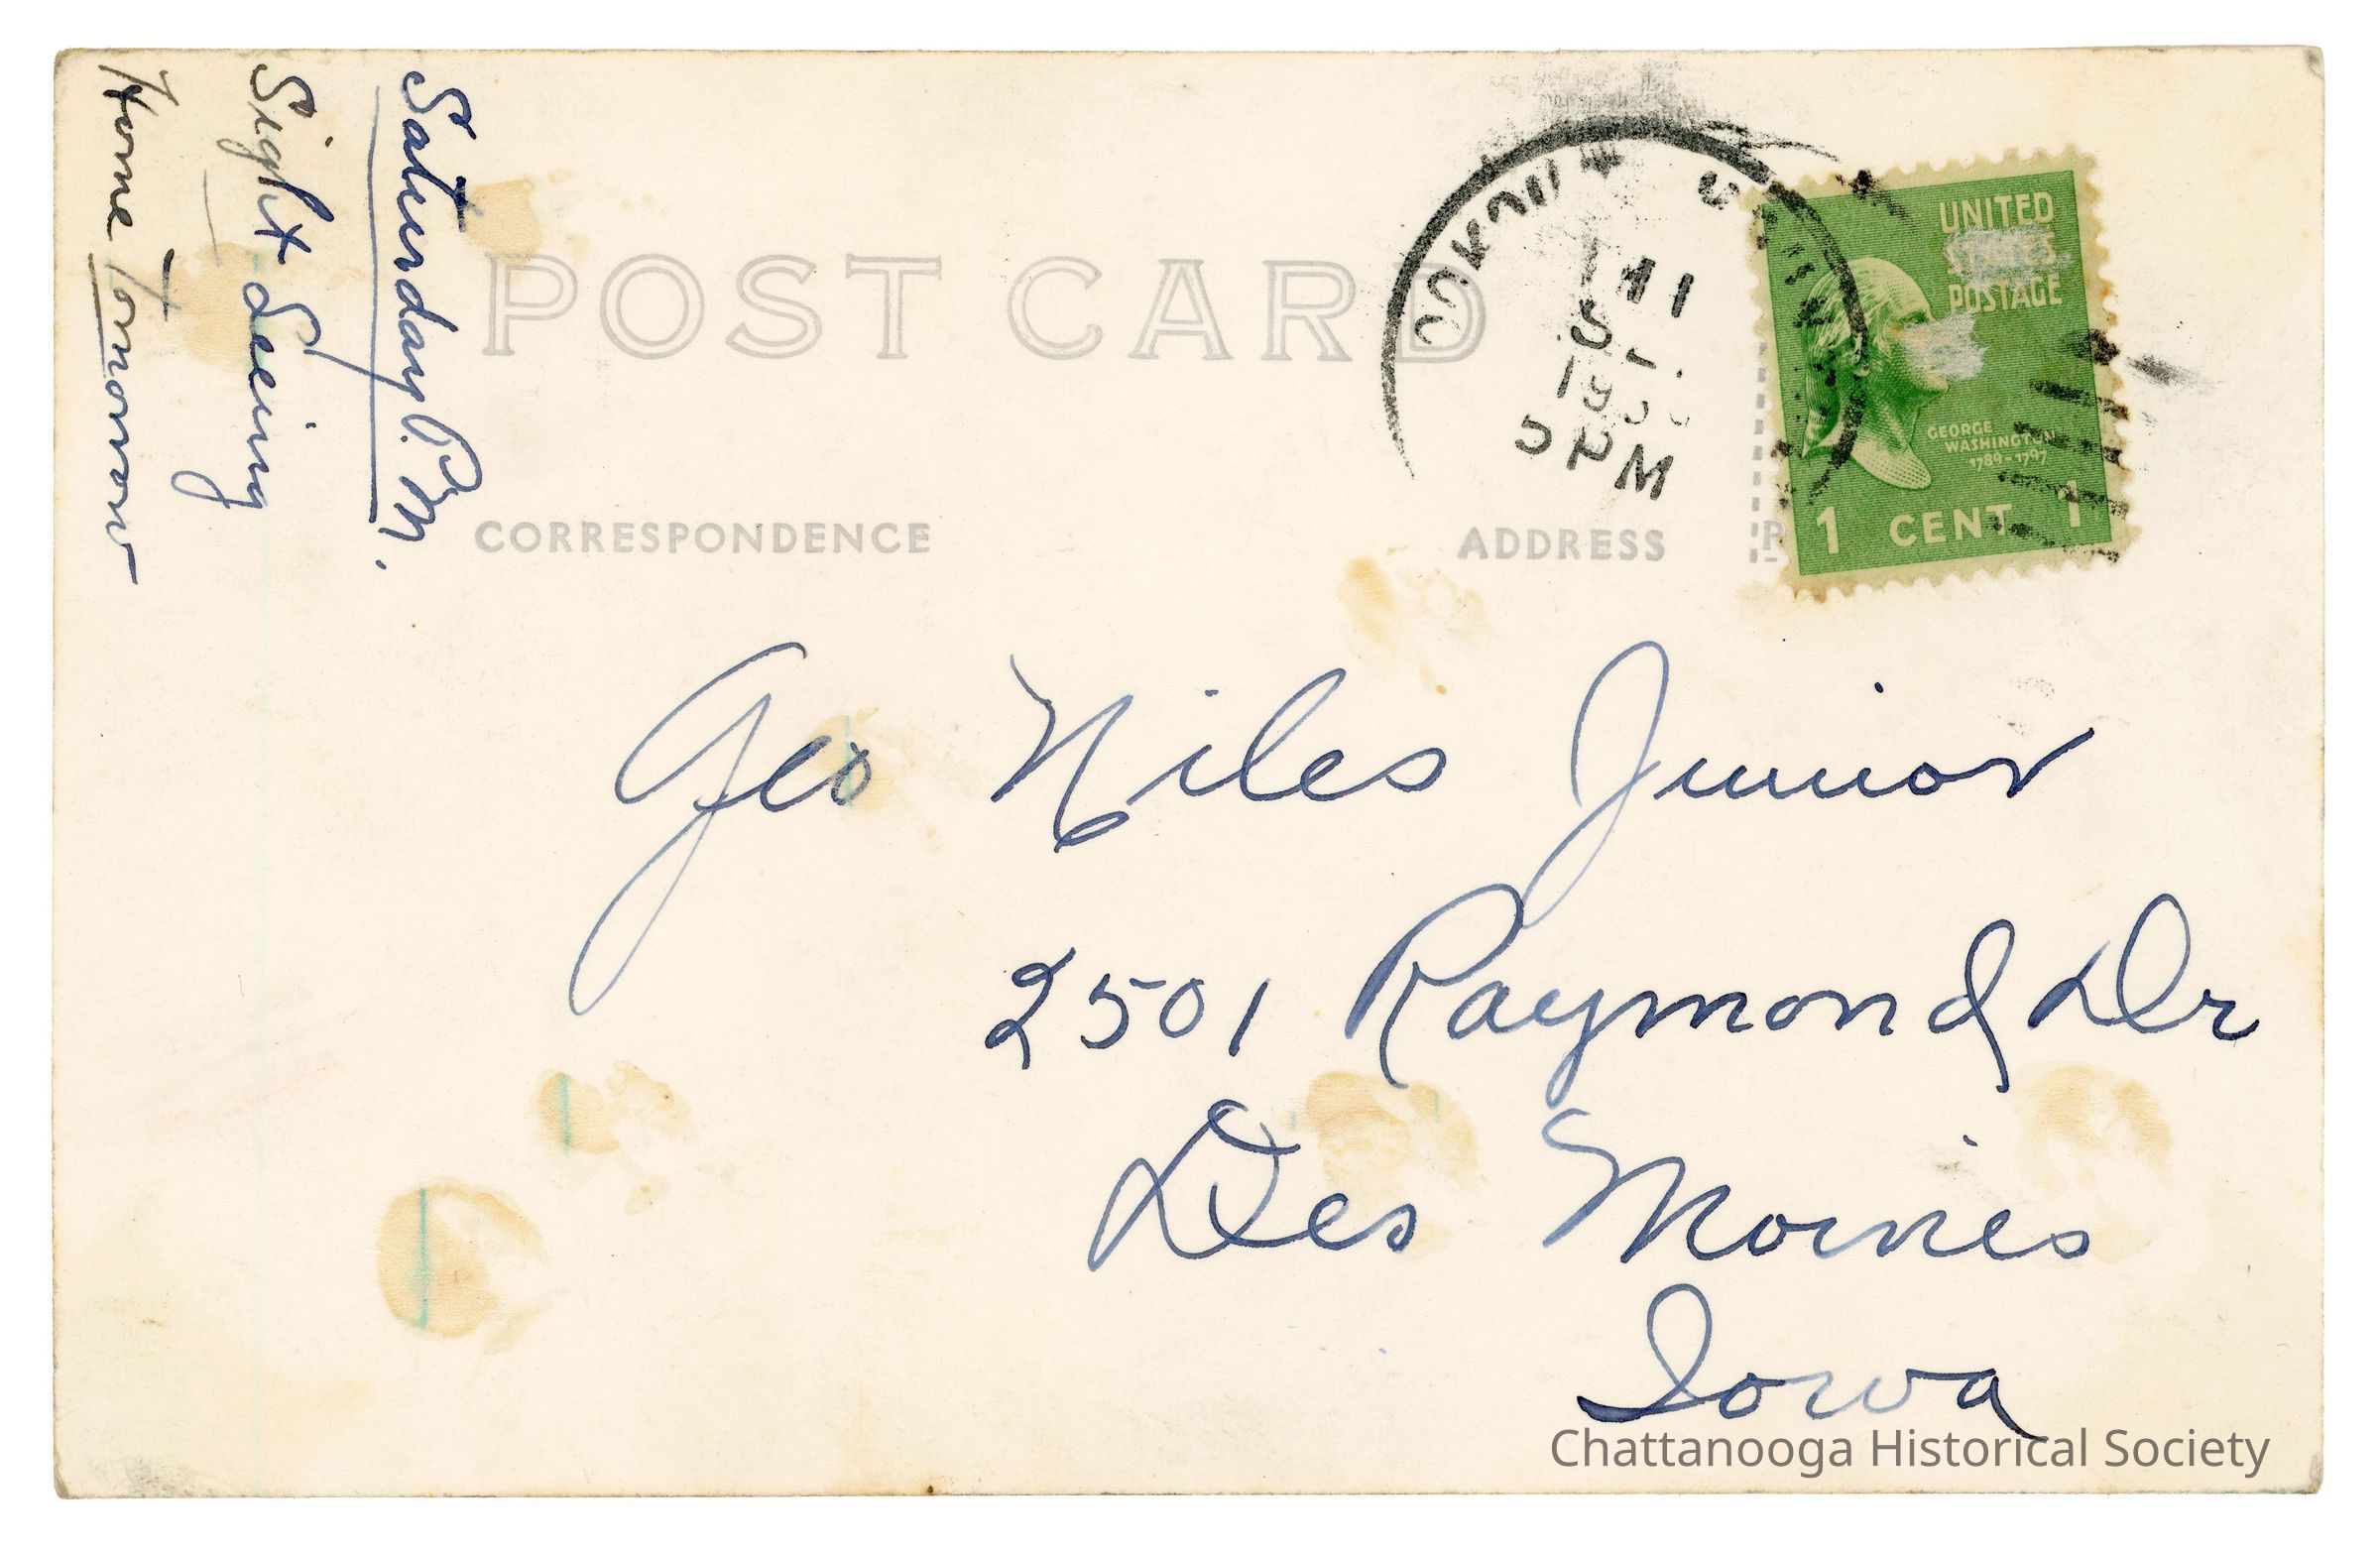 Saturday P.M.
Sight Seeing
Home Tomorrow
POST CARD
CORRESPONDENCE
ADDRESS
PM
UNITED
STATES
POSTAGE
GEORGE
WASHINGTON
1789-1797
1 CENT 1
Geo Niles Junior
2501 Raymond Dr
Des Moines
Iowa
Chattanooga Historical Society